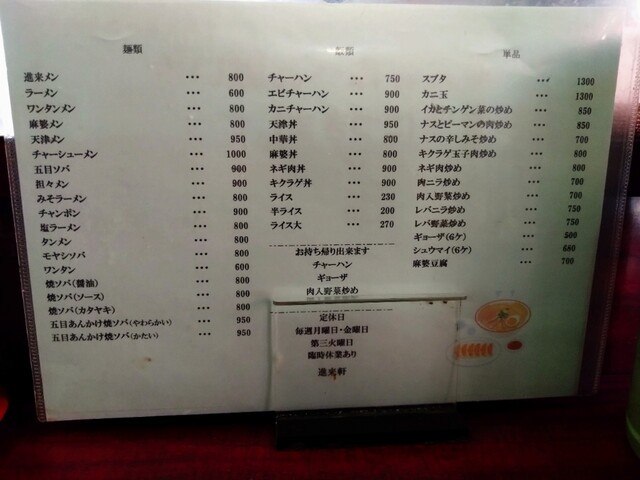 麺類
進来メン ・・・ 800
ラーメン ・・・ 600
ワンタンメン ・・・ 800
麻婆メン ・・・ 800
天津メン ・・・ 950
チャーシューメン ・・・ 1000
五目ソバ ・・・ 900
担々メン ・・・ 900
みそラーメン ・・・ 800
チャンポン ・・・ 900
塩ラーメン ・・・ 800
タンメン ・・・ 800
モヤシソバ ・・・ 800
ワンタン ・・・ 600
焼ソバ(醤油) ・・・ 800
焼ソバ(ソース) ・・・ 800
焼ソバ(カタヤキ) ・・・ 800
五目あんかけ焼ソバ(やわらかい) ・・・ 950
五目あんかけ焼ソバ(かたい) ・・・ 950
飯類
チャーハン ・・・ 750
エビチャーハン ・・・ 900
カニチャーハン ・・・ 900
天津丼 ・・・ 950
中華丼 ・・・ 800
麻婆丼 ・・・ 800
ネギ肉丼 ・・・ 900
キクラゲ丼 ・・・ 900
ライス ・・・ 230
半ライス ・・・ 200
ライス大 ・・・ 270
お持ち帰り出来ます
チャーハン
ギョーザ
肉入野菜炒め
定休日
毎週月曜日・金曜日
第三火曜日
臨時休業あり
進来軒
単品
スブタ ・・・ 1300
カニ玉 ・・・ 1300
イカとチンゲン菜の炒め ・・・ 850
ナスとピーマンの肉炒め ・・・ 850
ナスの辛しみそ炒め ・・・ 700
キクラゲ玉子肉炒め ・・・ 800
ネギ肉炒め ・・・ 800
肉ニラ炒め ・・・ 700
肉入野菜炒め ・・・ 700
レバニラ炒め ・・・ 750
レバ野菜炒め ・・・ 750
ギョーザ(6ケ) ・・・ 500
シュウマイ(6ケ) ・・・ 680
麻婆豆腐 ・・・ 700